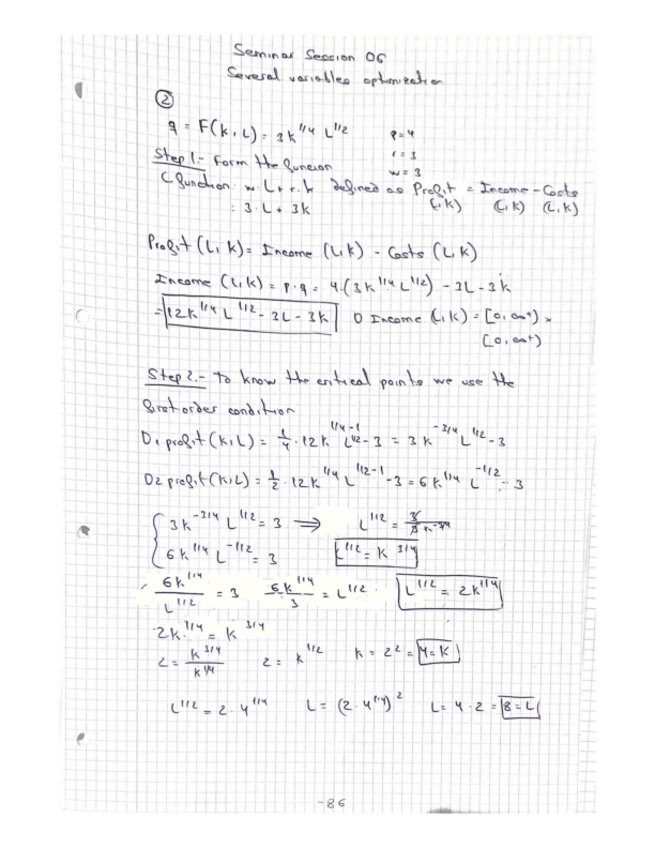 Seminar Session 06
Several variables optimization
②
q = F(K, L) = 3K^{1/4} L^{1/2} p = 4
r = 3
w = 3
Step 1.- Form the funcion
C function: w·L + r·k defined as Profit = Income - Costs
: 3·L + 3k (L,K) (L,K) (L,K)
Profit (L, K) = Income (L, K) - Costs (L, K)
Income (L, K) = p·q = 4·(3K^{1/4} L^{1/2}) - 3L - 3k
= 12K^{1/4} L^{1/2} - 3L - 3K D Income (L, K) = [0, ∞+) ×
[0, ∞+)
Step 2.- To know the critical points we use the
first order condition
D1 profit (K, L) = 1/4 · 12K^{1/4-1} L^{1/2} - 3 = 3K^{-3/4} L^{1/2} - 3
D2 profit (K, L) = 1/2 · 12K^{1/4} L^{1/2-1} - 3 = 6K^{1/4} L^{-1/2} - 3
3K^{-3/4} L^{1/2} = 3 ⟹ L^{1/2} = 3/3K^{-3/4}
6K^{1/4} L^{-1/2} = 3 L^{1/2} = K^{3/4}
6K^{1/4}/L^{1/2} = 3 6K^{1/4}/3 = L^{1/2} L^{1/2} = 2K^{1/4}
2K^{1/4} = K^{3/4}
2 = K^{3/4}/K^{1/4} 2 = K^{1/2} K = 2^2 = 4 = K
L^{1/2} = 2·4^{1/4} L = (2·4^{1/4})^2 L = 4·2 = 8 = L
-86